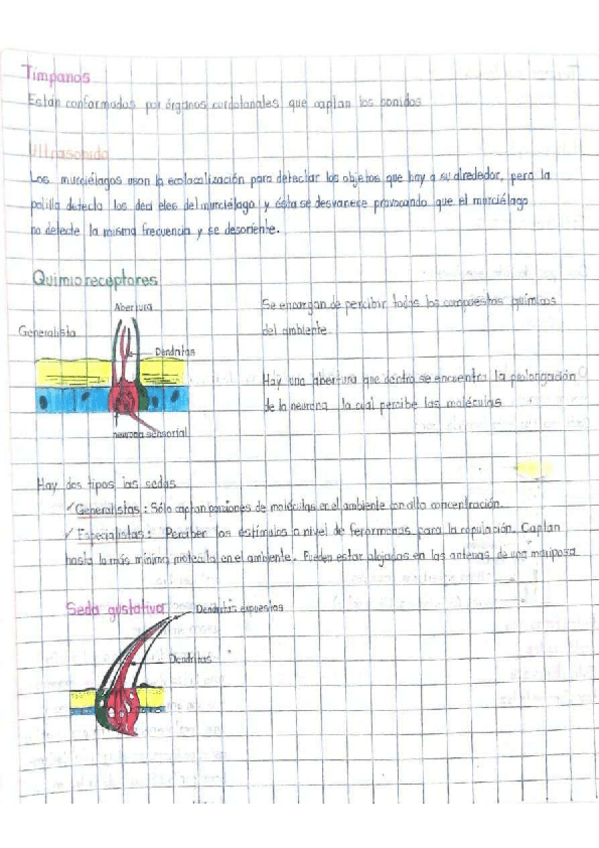 Tímpanos
Están conformados por órganos cordotonales que captan los sonidos
Ultrasonido
Los murciélagos usan la ecolocalización para detectar los objetos que hay a su alrededor, pero la
polilla detecta los deci eles del murciélago y ésta se desvanece provocando que el murciélago
no detecte la misma frecuencia y se desoriente.
Quimioreceptores
Abertura
Generalista
Dendritas
neurona sensorial
Se encargan de percibir todos los compuestos químicos
del ambiente.
Hay una abertura que dentro se encuentra la prolongación
de la neurona la cual percibe las moléculas
Hay dos tipos las sedas
✓Generalistas: Sólo captan porciones de moléculas en el ambiente con alta concentración.
✓Especialistas: Perciben los estímulos a nivel de feromonas para la copulación. Captan
hasta la más mínima molécula en el ambiente. Pueden estar alojadas en las antenas de una mariposa
Seda gustativa
Dendritas expuestas
Dendritas